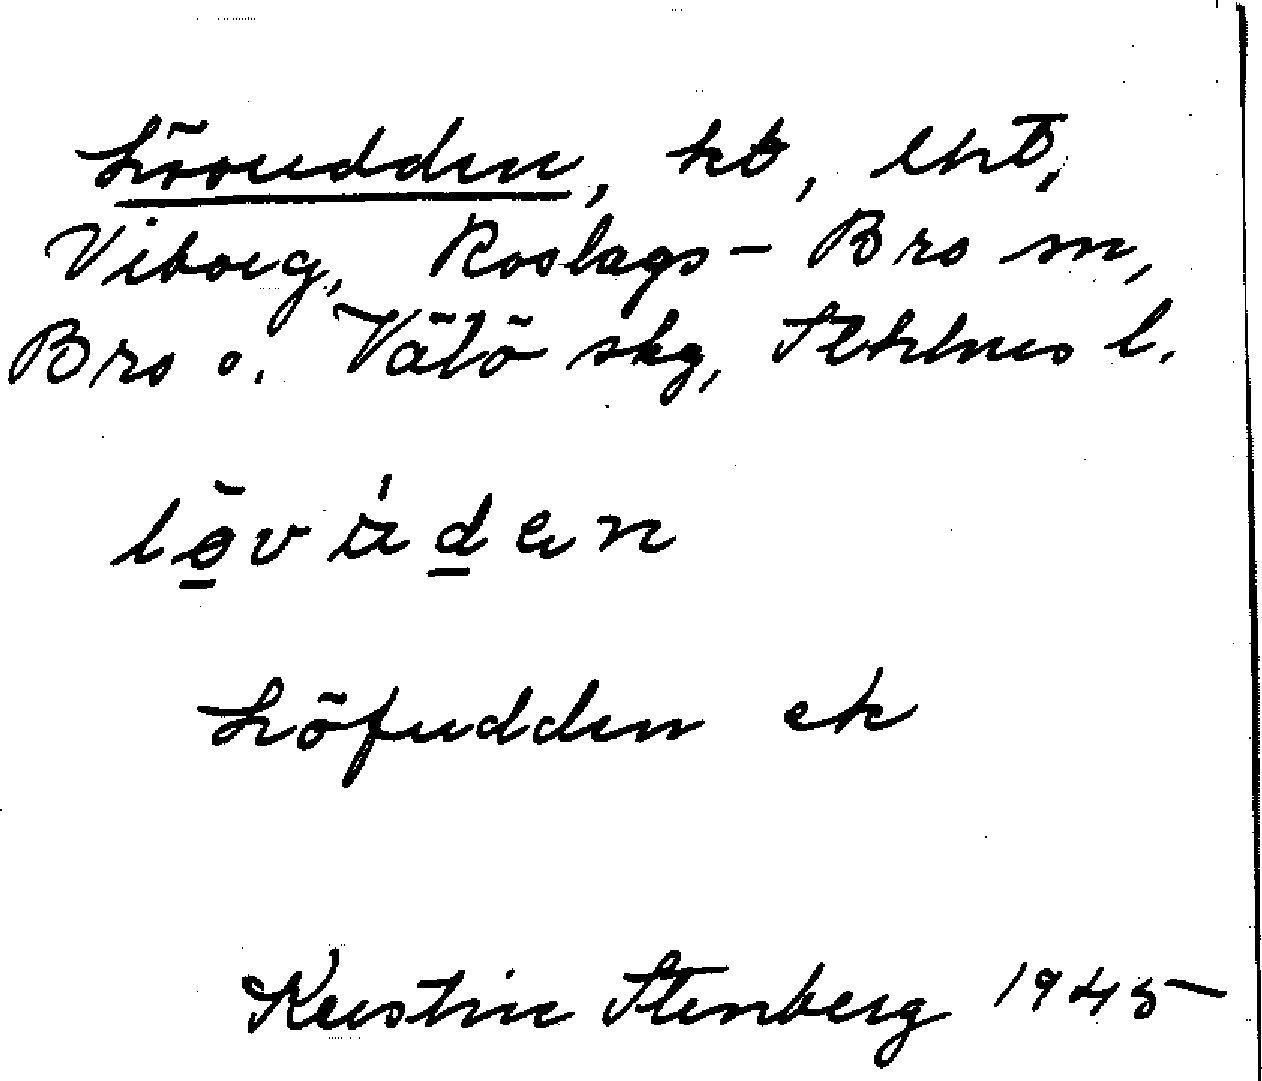 Lövudden, kt, lht,
Viborg, Roslags-Bro sn,
Bro o. Vätö skg, Sthlms l.
löv úden
Löfudden ek
Kerstin Stenberg 1945